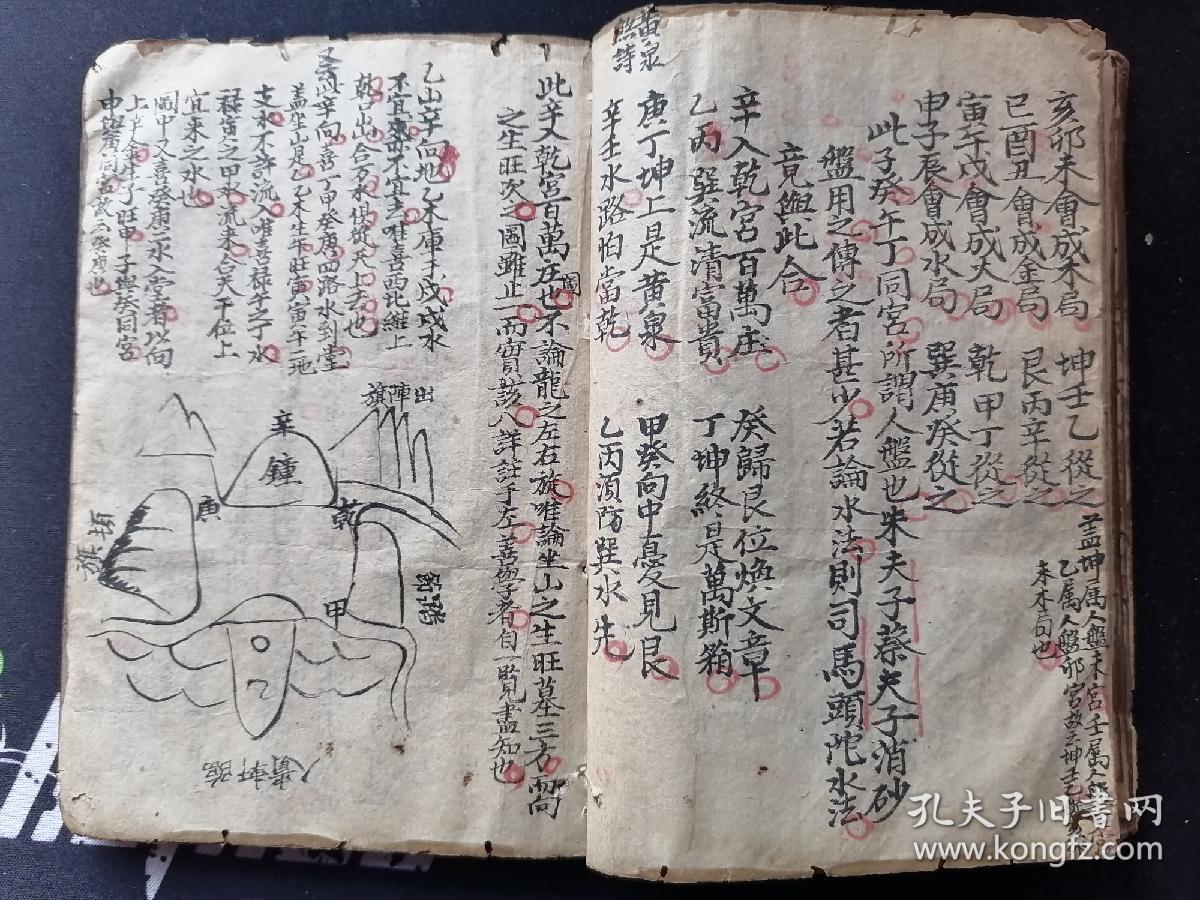 亥卯未會成木局 坤壬乙從之
蓋坤属人盤未宮壬属人盤
乙属人盤卯宮故云坤壬乙
未木局也
巳酉丑會成金局 艮丙辛從之
寅午戌會成火局 乾甲丁從之
申子辰會成水局 巽庚癸從之
此子癸午丁同宮所謂人盤也朱夫子蔡夫子消砂
盤用之傳之者甚少若論水法則司馬頭陀水法
竟與此合
辛入乾宮百萬庄 癸歸艮位煥文章
乙丙巽流清富貴 丁坤終是萬斯箱
庚丁坤上是黄泉 甲癸向中憂見艮
辛壬水路怕當乾 乙丙須防巽水先
黄泉
熊詩
此辛入乾宮百萬庄圖也不論龍之左右旋唯論坐山之生旺墓三方向
之生旺次之圖雖止一而實該八詳註于左善學者自一覽盡知也
乙山辛向地乙木庫于戌戌水
不宜來亦不宜去唯喜西北維上
乾山出合万水俱從天上去也
又此辛向喜丁甲癸庚四路水到堂
蓋坐山是乙乙木生午旺寅寅午二地
支水不許流入唯喜祿午之丁水
祿寅之甲水流来合天干位上
宜來之水也
圖中又喜癸庚二水入堂者以向
上辛金生子旺申子與癸同宮
申與庚同宮故云癸庚也
出陣旗
辛
鐘
庚
乾
甲
頓
旗
乙
孔夫子旧书网
www.kongfz.com